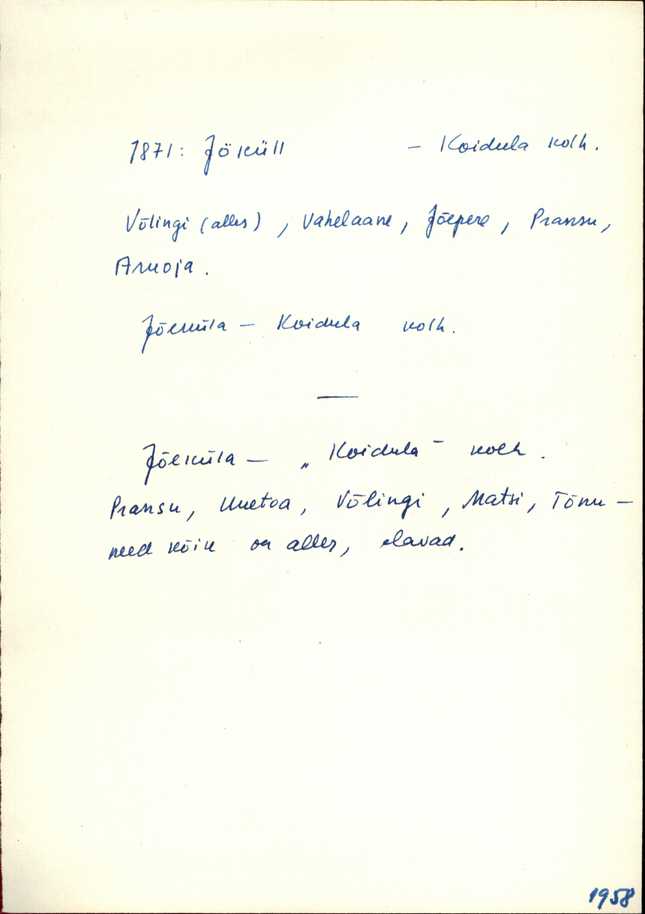 1871: Jöküll – Koidula kolh.
Võlingi (alles), Vahelaane, Jõepere, Pransu,
Aruoja.
Jõeküla – Koidula kolh.
Jõeküla – „Koidula" kolh.
Pransu, Uuetoa, Võlingi, Matsi, Tõnu –
need kõik on alles, elavad.
1958